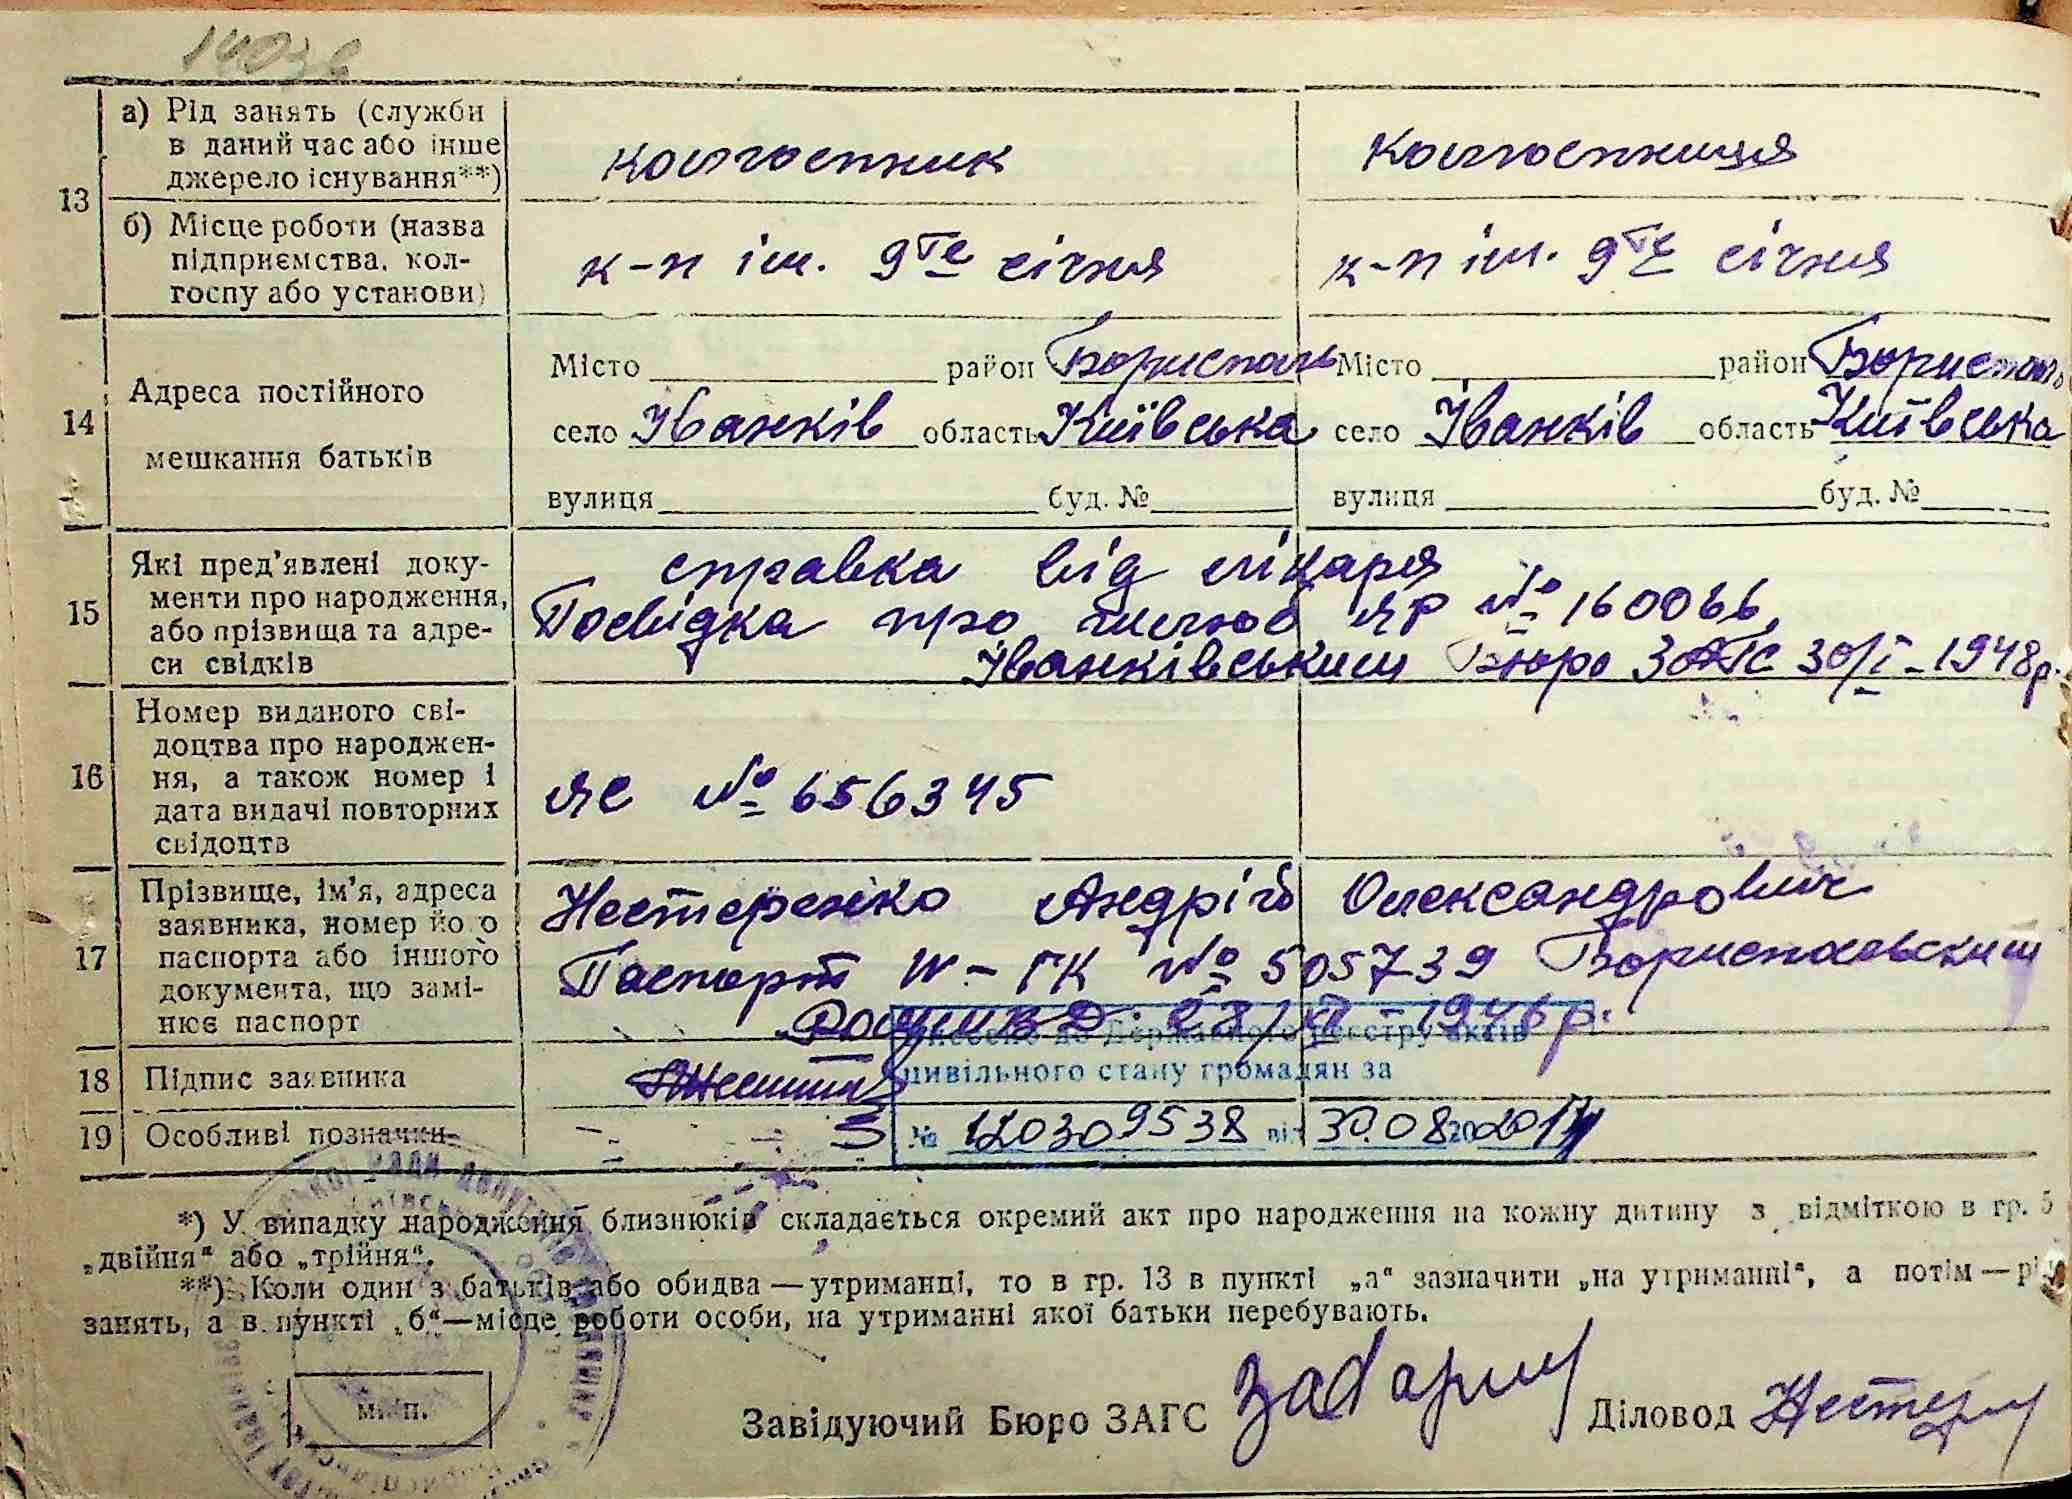 13
а) Рід занять (служби
в даний час або інше
джерело існування**)
колгоспник
колгоспниця
б) Місце роботи (назва
підприємства, кол-
госпу або установи)
к-п ім. 9го січня
к-п ім. 9го січня
14
Адреса постійного
мешкання батьків
Місто район Бориспіль
село Іванків область Київська
вулиця буд. №
Місто район Бориспіль
село Іванків область Київська
вулиця буд. №
15
Які пред'явлені доку-
менти про народження,
або прізвища та адре-
си свідків
справка від лікаря
Посвідка про шлюб ЯР № 160066,
Іванківським Бюро ЗАГС 30/І-1948р.
16
Номер виданого сві-
доцтва про народжен-
ня, а також номер і
дата видачі повторних
свідоцтв
ЯС № 656345
17
Прізвище, ім'я, адреса
заявника, номер йо о
паспорта або іншого
документа, що замі-
нює паспорт
Нестеренко Андрій Олександрович
Паспорт IV-ГК № 505739 Бориспольським
1946р.
18
Підпис заявника
19
Особливі позначки
Внесено до Державного реєстру актів
цивільного стану громадян за
№ 120309538 від 30.08.2017
*) У випадку народження близнюків складається окремий акт про народження на кожну дитину з відміткою в гр. 5
„двійня" або „трійня".
**) Коли один з батьків або обидва — утриманці, то в гр. 13 в пункті „а" зазначити „на утриманні", а потім — рід
занять, а в пункті „б"—місце роботи особи, на утриманні якої батьки перебувають.
м. п.
Завідуючий Бюро ЗАГС
Діловод